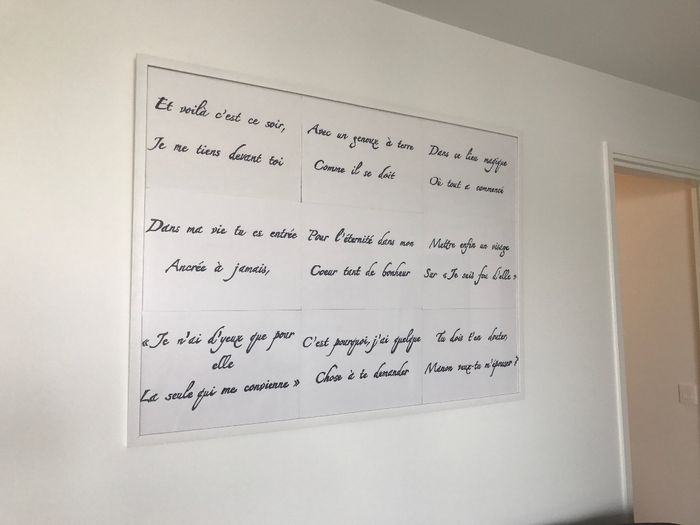 Et voilà c'est ce soir,
Je me tiens devant toi
Avec un genoux à terre
Comme il se doit
Dans ce lieu magique
Où tout a commencé
Dans ma vie tu es entrée
Ancrée à jamais,
Pour l'éternité dans mon
Coeur tant de bonheur
Mettre enfin un visage
Sur «Je suis fou d'elle»
«Je n'ai d'yeux que pour
elle
La seule qui me convienne»
C'est pourquoi, j'ai quelque
Chose à te demander
Tu dois t'en douter,
Manon veux-tu m'épouser?